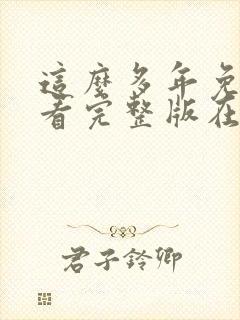 這麼多年免
看完整版在
君子鈴卿